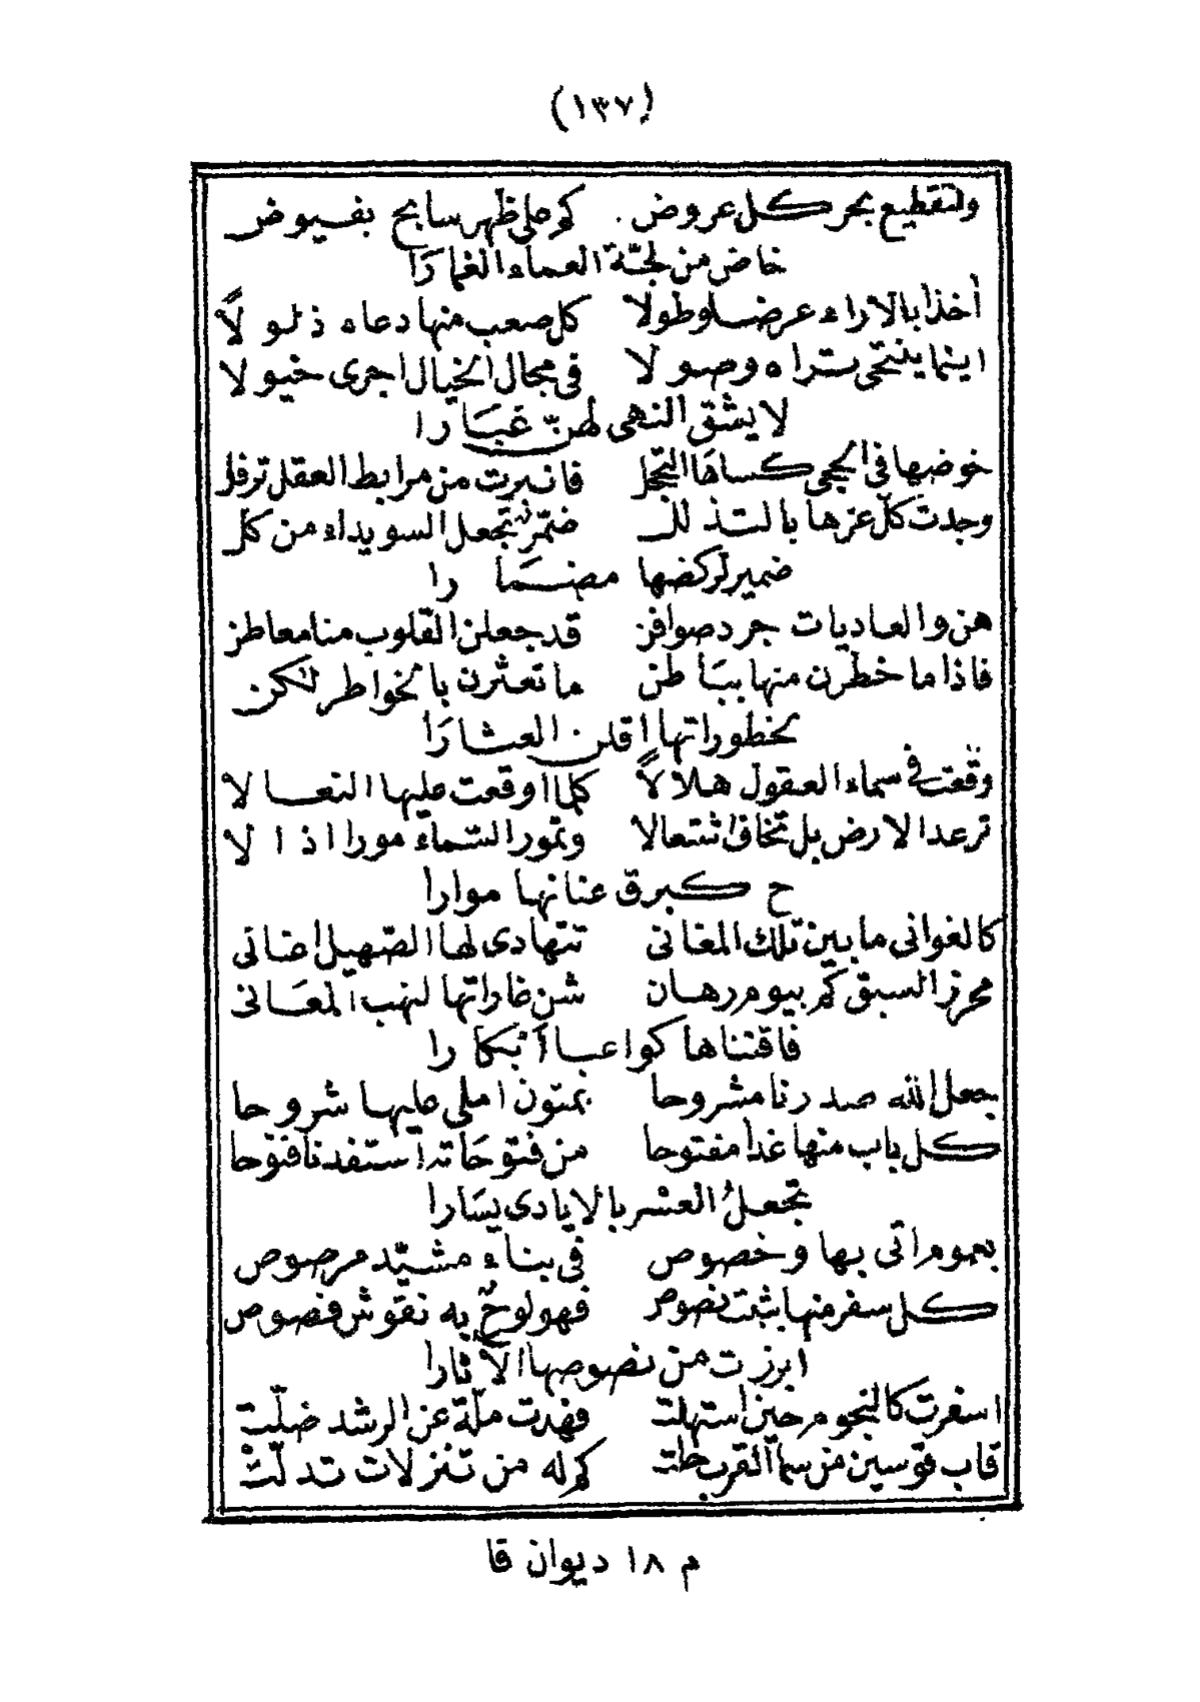 (١٣٧)
ولتقطيع بحر كل عروض . كم على ظهر سابح بفيوض
خاض من لجّة العماء الغمارَا
أخذا بالاراء عرضا وطولا كل صعب منها دعاه ذلولاً
اينما ينتحى تراه وصولا فى مجال الخيال اجرى خيولا
لا يشق النهى لهنّ غبَارا
خوضها فى الحجى كساهَا التجمل فانبرت من مرابط العقل ترفل
وجدت كلّ عزها بالتذلل ضمّر تجعل السويداء من كل
ضمير لركضها مضمَارا
هن والعاديات جرد صوافن قد جعلن القلوب منا معاطن
فاذا ما خطرن منها ببَاطن ما تعثرن بالخواطر لكن
بخطوراتها اقلن العثارَا
وقعت فى سماء العقول هلالاً كلما اوقعت عليها النعالا
ترعد الارض بل تخاف اشتعالا وتمور السّماء مورا اذا لا
ح كبرق عنانها موارا
كالغوانى ما بين تلك المغانى تتهادى لها الصّهيل اغانى
محرز السبق كم بيوم رهان شن غاراتها لنهب المعَانى
فاقتناها كواعبا أبكارا
جعل الله صدرنا مشروحا بمتون املى عليها شروحا
كل باب منها غدا مفتوحا من فتوحَاته استفدنا فتوحا
تجعلُ العسر بالايادى يسَارا
بعموم اتى بها وخصوص فى بناء مشيّد مرصوص
كل سفر منها بثبت نصوص فهو لوحٌ به نقوش فصوص
ابرزت من نصوصها الآثارا
اسفرت كالنجوم حين استهلت فهدت ملّة عن الرشد ضلّت
قاب قوسين من سماء القرب حلت كم له من تنزلات تدلّت
م ١٨ ديوان قا